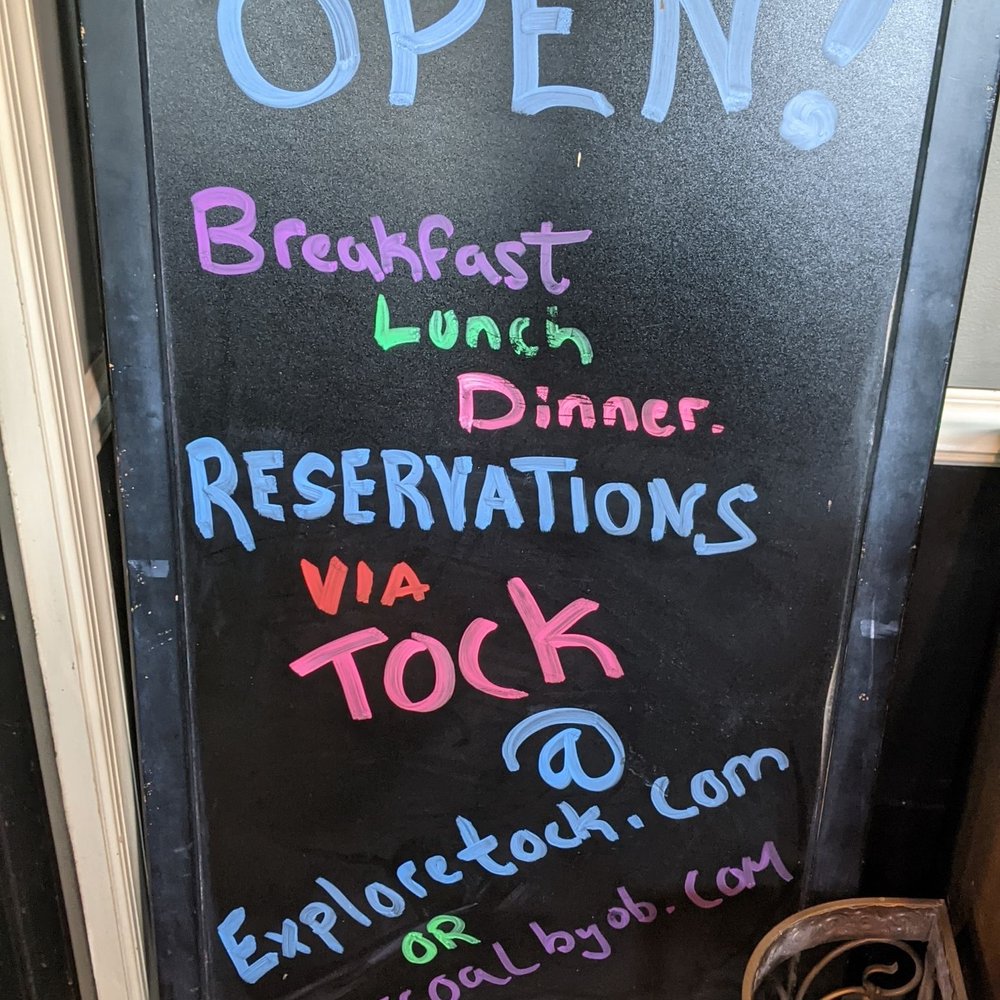 OPEN!
Breakfast
Lunch
Dinner.
RESERVATIONS
VIA
TOCK
@
Exploretock.com
OR